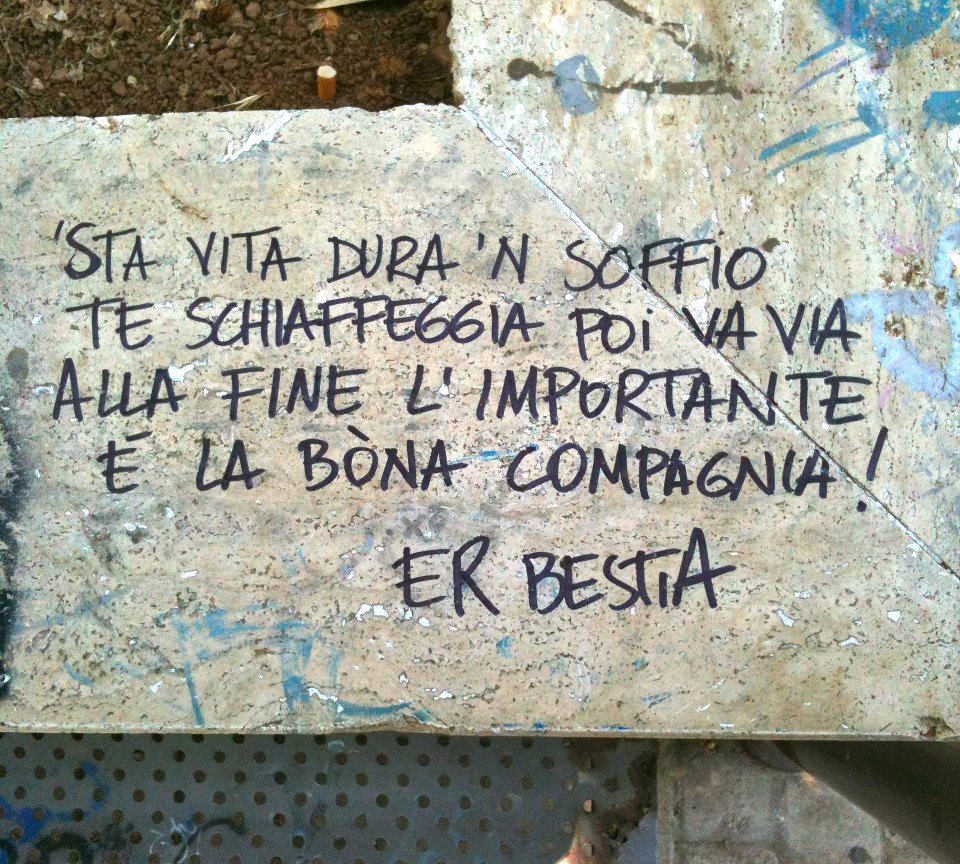 'STA VITA DURA 'N SOFFIO
TE SCHIAFFEGGIA POi VA VIA
ALLA FINE L'IMPORTANTE
É LA BÒNA COMPAGNIA!
ER BESTiA